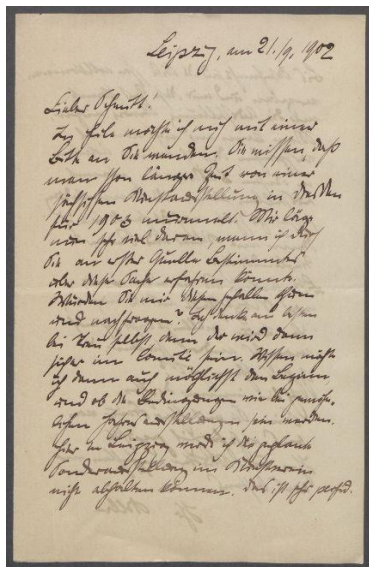 Leipzig, am 21./9. 1902
Lieber Schmitt!
In Eile möchte ich mich mit einer
Bitte an Sie wenden. Sie wissen, daß
man schon längere Zeit von einer
sächsischen Kunstausstellung in Dresden
für 1903 murmelt. Mir läge
nun sehr viel daran, wenn ich durch
Sie an erster Quelle Bestimmtes
über diese Sache erfahren könnte.
Würden Sie mir diesen Gefallen thun
und nachfragen? Ich denke am besten
bei selbst, denn der wird dann
sicher im Comite sein. Wissen möchte
ich dann auch möglichst den Beginn
und ob die Bedingungen wie bei
sein werden.
Hier in Leipzig werde ich die geplante
Sonderausstellung im Kunstverein
nicht abhalten können. Das ist sehr